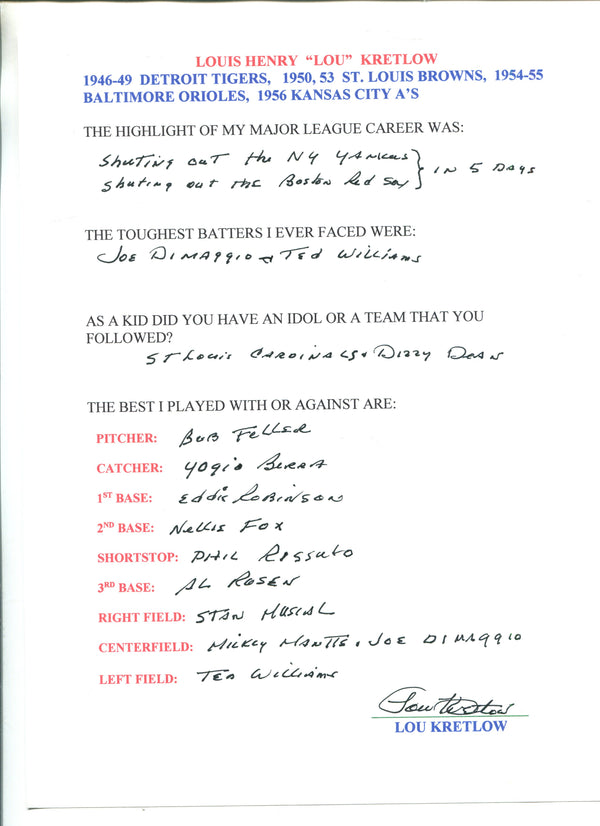 LOUIS HENRY "LOU" KRETLOW
1946-49 DETROIT TIGERS, 1950, 53 ST. LOUIS BROWNS, 1954-55
BALTIMORE ORIOLES, 1956 KANSAS CITY A'S
THE HIGHLIGHT OF MY MAJOR LEAGUE CAREER WAS:
Shuting out the NY Yankees } in 5 Days
Shuting out the Boston Red Sox
THE TOUGHEST BATTERS I EVER FACED WERE:
Joe DiMaggio & Ted Williams
AS A KID DID YOU HAVE AN IDOL OR A TEAM THAT YOU
FOLLOWED?
St Louis Cardinals & Dizzy Dean
THE BEST I PLAYED WITH OR AGAINST ARE:
PITCHER: Bob Feller
CATCHER: Yogi Berra
1ST BASE: Eddie Robinson
2ND BASE: Nellie Fox
SHORTSTOP: Phil Rissuto
3RD BASE: Al Rosen
RIGHT FIELD: Stan Musial
CENTERFIELD: Mickey Mantle, Joe DiMaggio
LEFT FIELD: Ted Williams
Lou Kretlow
LOU KRETLOW